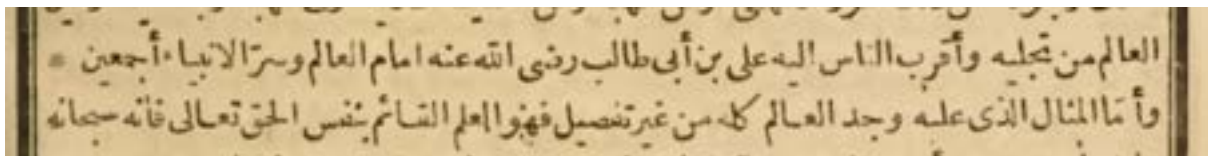 العالم من تجليه وأقرب الناس اليه على بن أبى طالب رضى الله عنه امام العالم وسر الانبياء أجمعين *
وأما المثال الذى عليه وجد العالم كله من غير تفصيل فهو العلم القائم بنفس الحق تعالى فانه سبحانه